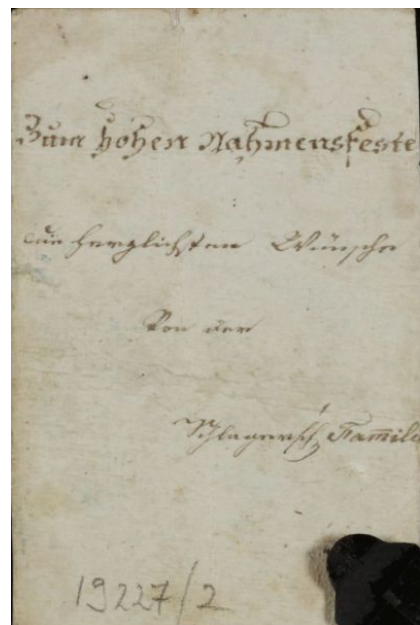 Zum hohen Nahmensfeste
die herzlichsten Wünsche
Von der
Schlagersch Famile
19227/2